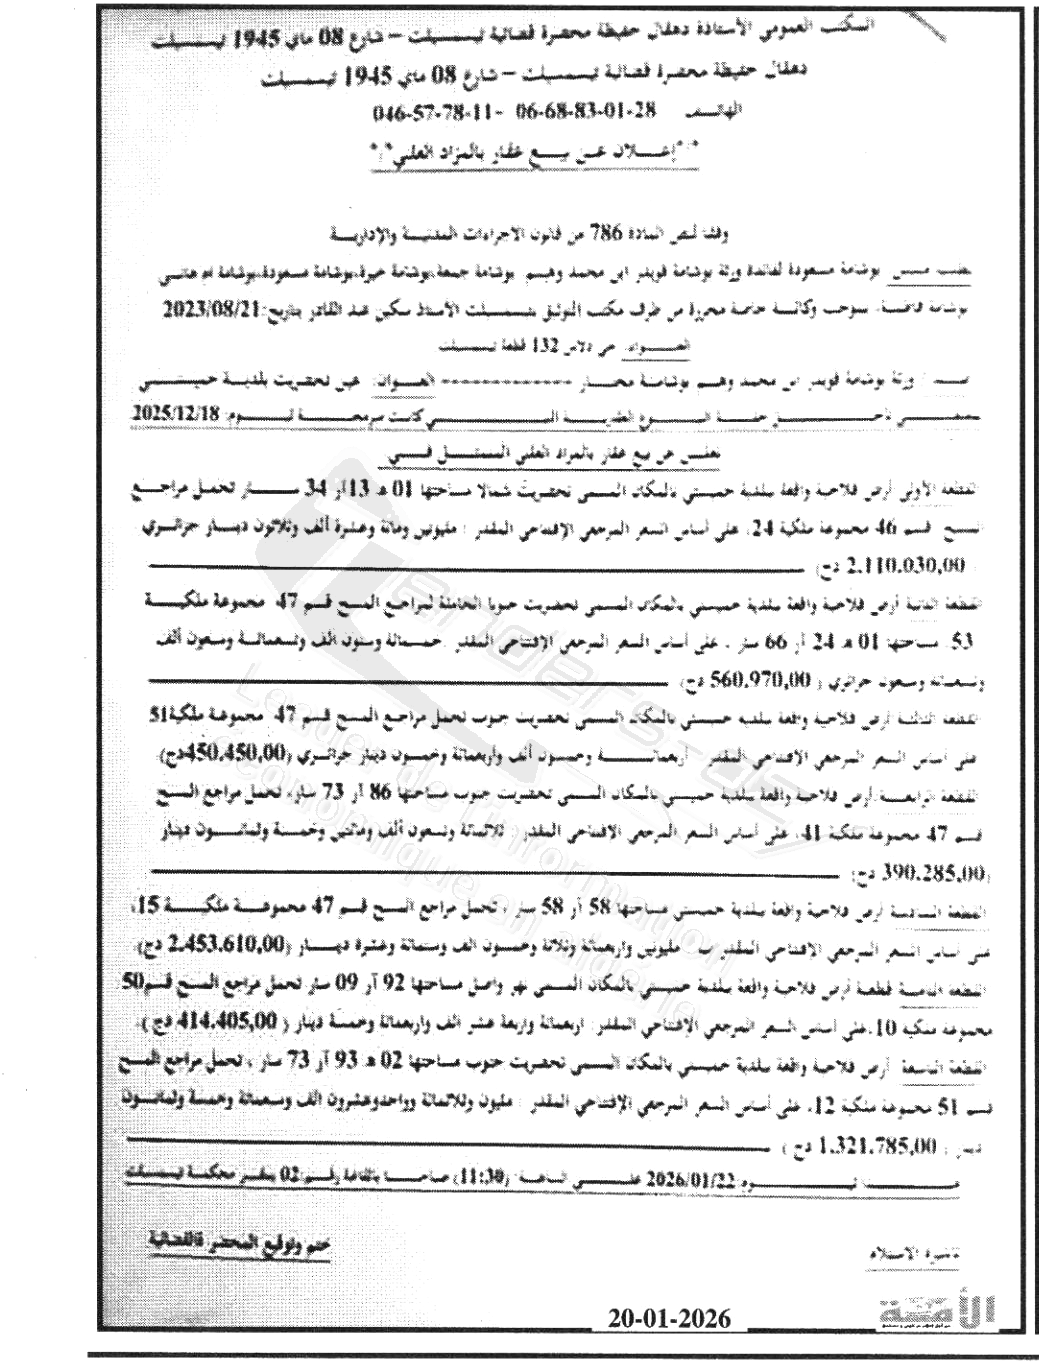 المكتب العمومي الأستاذة دهقال حفيظة محضرة قضائية تيسمسيلت – شارع 08 ماي 1945 تيسمسيلت
دهقال حفيظة محضرة قضائية تيسمسيلت – شارع 08 ماي 1945 تيسمسيلت
الهاتف 06-68-83-01-28 - 046-57-78-11
*/*إعلان عن بيع عقار بالمزاد العلني*/*
وفقا لنص المادة 786 من قانون الاجراءات المدنية والإدارية
بوشامة مسعودة لفائدة ورثة بوشامة قويدر ابن محمد وهم بوشامة جمعة،بوشامة خيرة،بوشامة مسعودة،بوشامة ام هاني
بوشامة فاطمة، بموجب وكالة خاصة محررة من طرف مكتب التوثيق بتيسمسيلت الأستاذ سكين عبد القادر بتاريخ:2023/08/21
العنوان: حي 132 قطعة تيسمسيلت
ورثة بوشامة قويدر ابن محمد وهم بوشامة مختار ------------- العنوان: عين تحضريت بلدية خميستي
كانت مبرمجة ليوم: 2025/12/18
نعلن عن بيع عقار بالمزاد العلني المتمثل في
القطعة الأولى أرض فلاحية واقعة ببلدية خميستي بالمكان المسمى تحضريت شمالا مساحتها 01 ه 13 آر 34 سنتيار تحمل مراجع
المسح قسم 46 مجموعة ملكية 24، على أساس السعر المرجعي الإفتتاحي المقدر : مليونين ومائة وعشرة ألف وثلاثون دينار جزائري
2.110.030,00 دج)
القطعة الثانية أرض فلاحية واقعة ببلدية خميستي بالمكان المسمى تحضريت جنوبا الحاملة لمراجع المسح قسم 47، مجموعة ملكية
53، مساحتها 01 ه 24 آر 66 سنتيار ، على أساس السعر المرجعي الافتتاحي المقدر خمسمائة وستون ألف وتسعمائة وسبعون ألف
وتسعمائة وسبعون جزائري ( 560.970,00 دج)
القطعة الثالثة أرض فلاحية واقعة ببلدية خميستي بالمكان المسمى تحضريت جنوب تحمل مراجع المسح قسم 47 مجموعة ملكية51
على أساس السعر المرجعي الافتتاحي المقدر أربعمائة وخمسون ألف وأربعمائة وخمسون دينار جزائري (450.450,00دج)
القطعة الرابعة أرض فلاحية واقعة ببلدية خميستي بالمكان المسمى تحضريت جنوب مساحتها 86 آر 73 سنتيار، تحمل مراجع المسح
قسم 47 مجموعة ملكية 41، على أساس السعر المرجعي الافتتاحي المقدر ثلاثمائة وتسعون ألف ومائتين وخمسة وثمانون دينار
(390.285,00 دج)
القطعة السادسة أرض فلاحية واقعة ببلدية خميستي مساحتها 58 آر 58 سنتيار ، تحمل مراجع المسح قسم 47 مجموعة ملكية 15،
على أساس السعر المرجعي الافتتاحي المقدر ب مليونين واربعمائة وثلاثة وخمسون الف وستمائة وعشرة دينار (2.453.610,00 دج)
القطعة الثامنة قطعة أرض فلاحية واقعة ببلدية خميستي بالمكان المسمى نهر واصل مساحتها 92 آر 09 سنتيار تحمل مراجع المسح قسم50
مجموعة ملكية 10،على أساس السعر المرجعي الإفتتاحي المقدر: اربعمائة واربعة عشر الف واربعمائة وخمسة دينار ( 414.405,00 دج )،
القطعة التاسعة أرض فلاحية واقعة ببلدية خميستي بالمكان المسمى تحضريت جنوب مساحتها 02 ه 93 آر 73 سنتيار ، تحمل مراجع المسح
قسم 51 مجموعة ملكية 12، على أساس السعر المرجعي الإفتتاحي المقدر : مليون وثلاثمائة وواحدوعشرون الف وسبعمائة وخمسة وثمانون
دينار ( 1.321.785,00 دج )
يوم: 2026/01/22 على الساعة: (11:30) صباحا بالقاعة رقم:02 بمقر محكمة تيسمسيلت
ختم وتوقيع المحضرة القضائية
تأشيرة الاستلام
20-01-2026
الأمة
Leaders-dz
Leader de l'information
économique en algérie